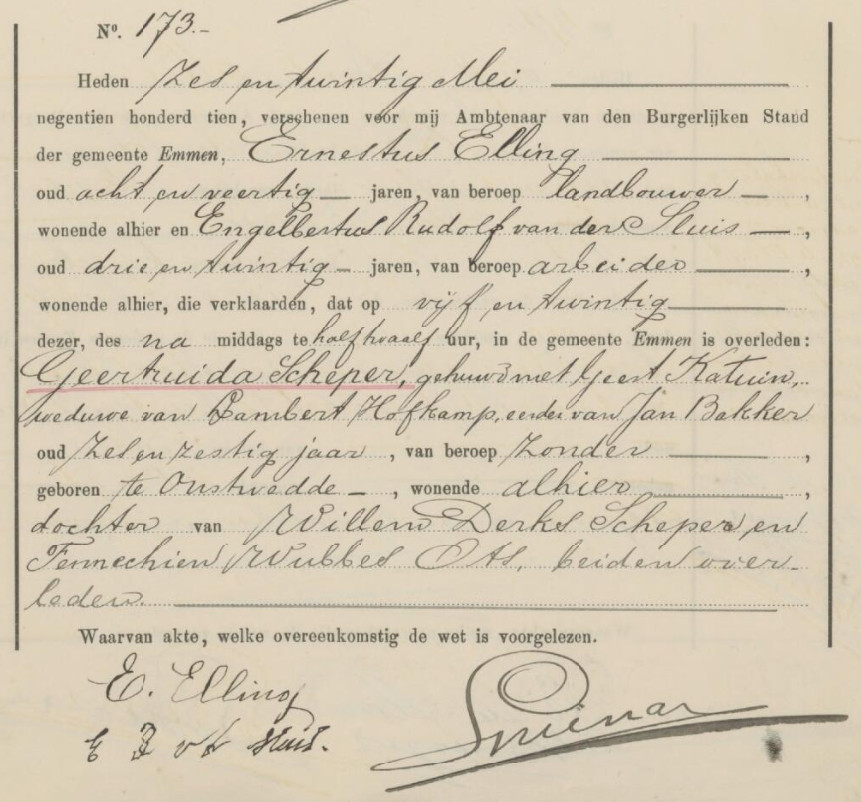 No. 173.-
Heden Zes en twintig Mei
negentien honderd tien, verschenen voor mij Ambtenaar van den Burgerlijken Stand
der gemeente Emmen, Ernestus Elling
oud acht en veertig jaren, van beroep landbouwer,
wonende alhier en Engelbertus Rudolf van der Sluis,
oud drie en twintig jaren, van beroep arbeider,
wonende alhier, die verklaarden, dat op vijf en twintig
dezer, des na middags te half twaalf uur, in de gemeente Emmen is overleden:
Geertruida Scheper, gehuwd met Geert Katuin,
weduwe van Lambert Hofkamp, eerder van Jan Bakker
oud zes en zestig jaar, van beroep zonder,
geboren te Onstwedde, wonende alhier,
dochter van Willem Derks Scheper en
Fennechien Wubbes Ots, beiden over-
leden.
Waarvan akte, welke overeenkomstig de wet is voorgelezen.
E. Elling
E R v d Sluis.